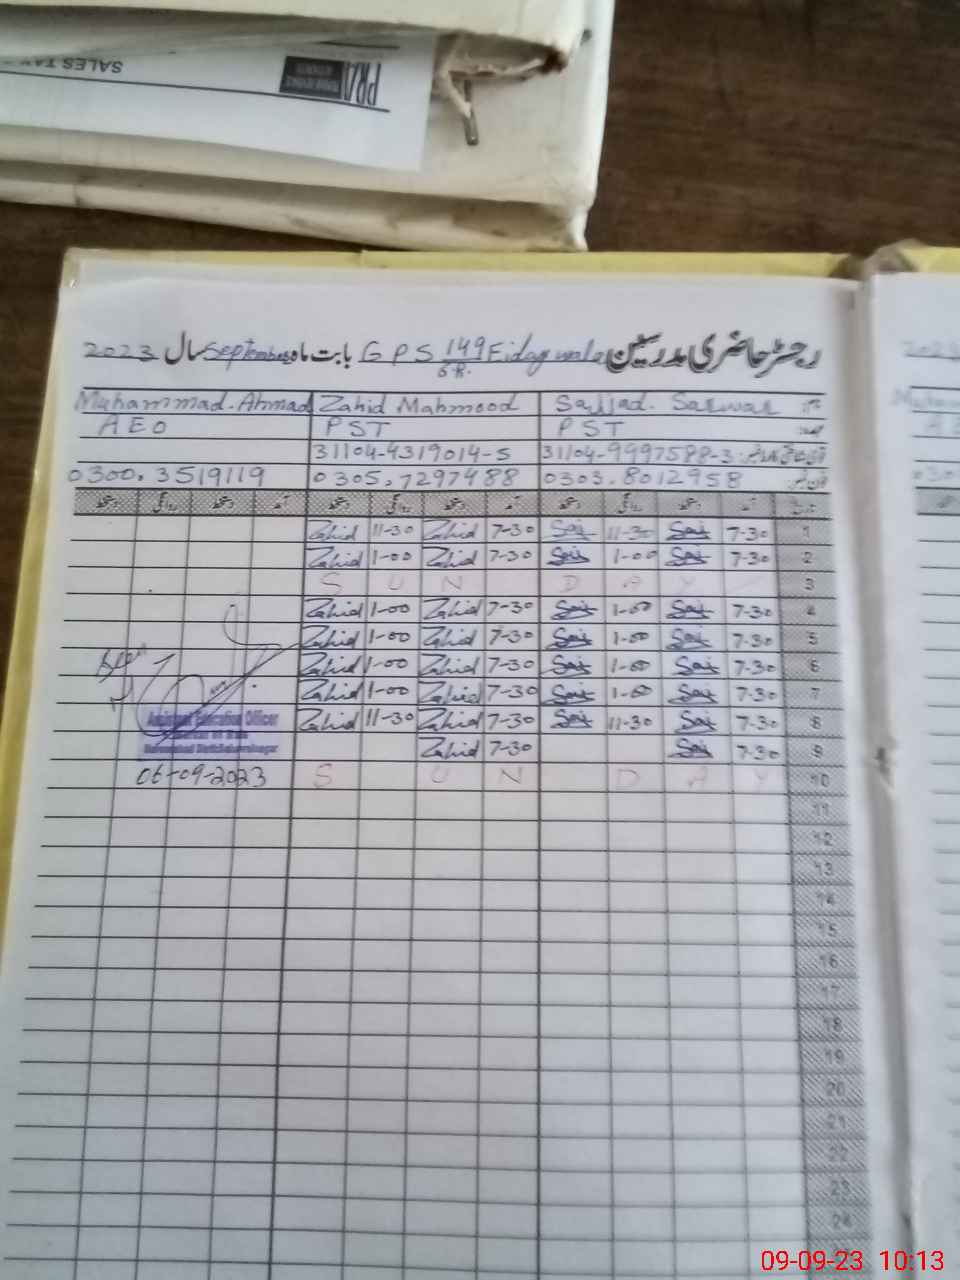 SALES TAX
PRA
رجسٹر حاضری مدرسین GPS 149/6R. Fidaywala بابت ماہ September سال 2023
نام Sajjad. Sarwar Zahid Mahmood Muhammad. Ahmad
عہدہ PST PST AEO
31104-9997588-3 31104-4319014-5
فون نمبر 0303.8012958 0305.7297488 0300.3519119
تاریخ آمد دستخط روانگی دستخط آمد دستخط روانگی دستخط آمد دستخط روانگی دستخط
1 7-30 Saj 11-30 Saj 7-30 Zahid 11-30 Zahid
2 7-30 Saj 1-00 Saj 7-30 Zahid 1-00 Zahid
3 S U N D A Y
4 7-30 Saj 1-00 Saj 7-30 Zahid 1-00 Zahid
5 7-30 Saj 1-00 Saj 7-30 Zahid 1-00 Zahid
6 7-30 Saj 1-00 Saj 7-30 Zahid 1-00 Zahid
7 7-30 Saj 1-00 Saj 7-30 Zahid 1-00 Zahid
8 7-30 Saj 11-30 Saj 7-30 Zahid 11-30 Zahid
9 7-30 Saj 7-30 Zahid
10 S U N D A Y
Seen
Assistant Education Officer
06-09-2023
11
12
13
14
15
16
17
18
19
20
21
22
23
24
09-09-23 10:13